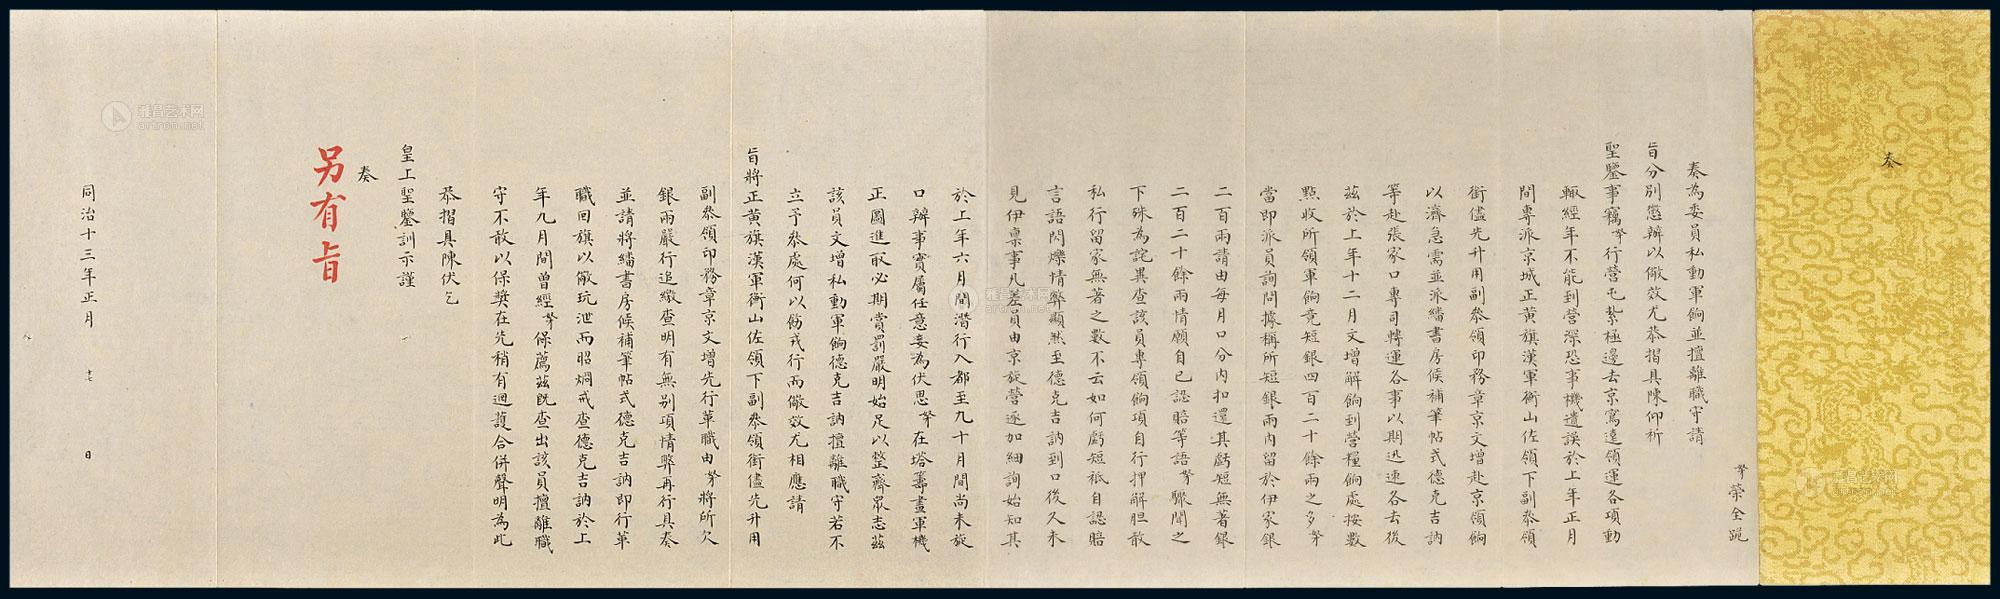 奏
奴才榮全跪
奏為委員私動軍餉並擅離職守請
旨分別懲辦以儆效尤恭摺具陳仰祈
聖鑒事竊奴才行營屯紮極邊去京窵遠領運各項動
輒經年不能到營深恐事機遺誤於上年正月
間專派京城正黃旗漢軍衡山佐領下副叅領
銜儘先升用副叅領印務章京文增赴京領餉
以濟急需並派繙書房候補筆帖式德克吉訥
等赴張家口專司轉運各事以期迅速各去後
茲於上年十二月文增解餉到營糧餉處按數
點收所領軍餉竟短銀四百二十餘兩之多奴才
當即派員詢問據稱所短銀兩內留於伊家銀
二百兩請由每月口分內扣還其虧短無著銀
二百二十餘兩情願自己認賠等語奴才驟聞之
下殊為詫異查該員專領餉項自行押解胆敢
私行留家無著之數不云如何虧短祗自認賠
言語閃爍情弊顯然至德克吉訥到口後久未
見伊稟事凡差員由京旋營逐加細詢始知其
於上年六月間潛行入都至九十月間尚未旋
口辦事實屬任意妄為伏思奴才在塔籌畫軍機
正圖進取必期賞罰嚴明始足以整齊眾志茲
該員文增私動軍餉德克吉訥擅離職守若不
立予叅處何以飭戎行而儆效尤相應請
旨將正黃旗漢軍衡山佐領下副叅領銜儘先升用
副叅領印務章京文增先行革職由奴才將所欠
銀兩嚴行追繳查明有無別項情弊再行具奏
並請將繙書房候補筆帖式德克吉訥即行革
職回旗以儆玩泄而昭烱戒查德克吉訥於上
年九月間曾經奴才保薦茲既查出該員擅離職
守不敢以保獎在先稍有迴護合併聲明為此
恭摺具陳伏乞
皇上聖鑒訓示謹
奏
另有旨
同治十三年正月 十七 日
雅昌艺术网
artron.net